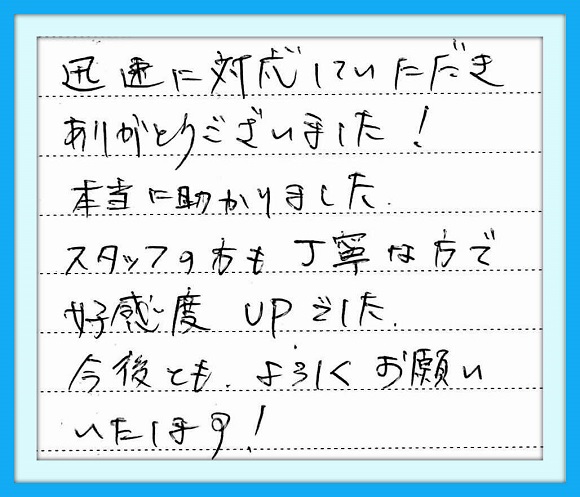 迅速に対応していただき
ありがとうございました!
本当に助かりました.
スタッフの方も丁寧な方で
好感度UPでした.
今後とも、よろしくお願い
いたします!